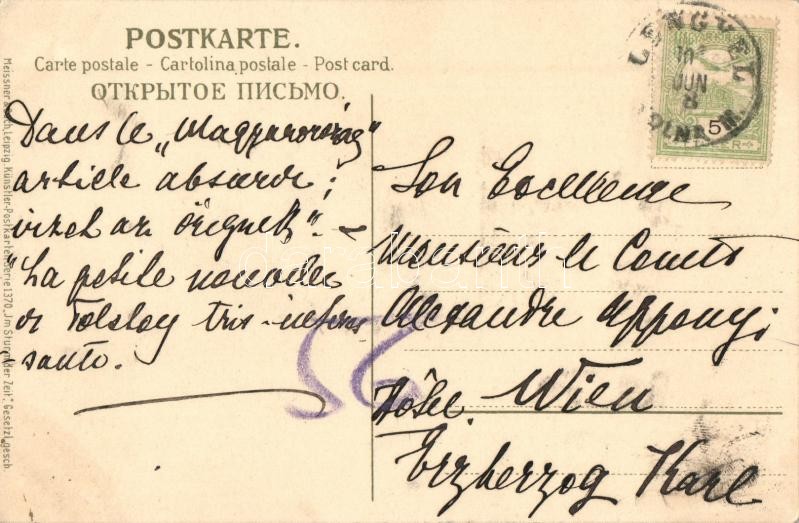 POSTKARTE.
Carte postale - Cartolina postale - Post card.
ОТКРЫТОЕ ПИСЬМО.
Dans le „Magyarország"
article absurde;
az
"La petite nouvelle
de Tolstoy très interes
sante.
Son Excellence
Monsieur le Comte
Alexandre Apponyi
Hôtel Wien
Erzherzog Karl
LENGYEL
JUN
8
TOLNA M.
5
Meissner & Buch, Leipzig. Künstler-Postkarten Serie 1370 „Im Sturm der Zeit." Gesetzl. gesch.
darabanth